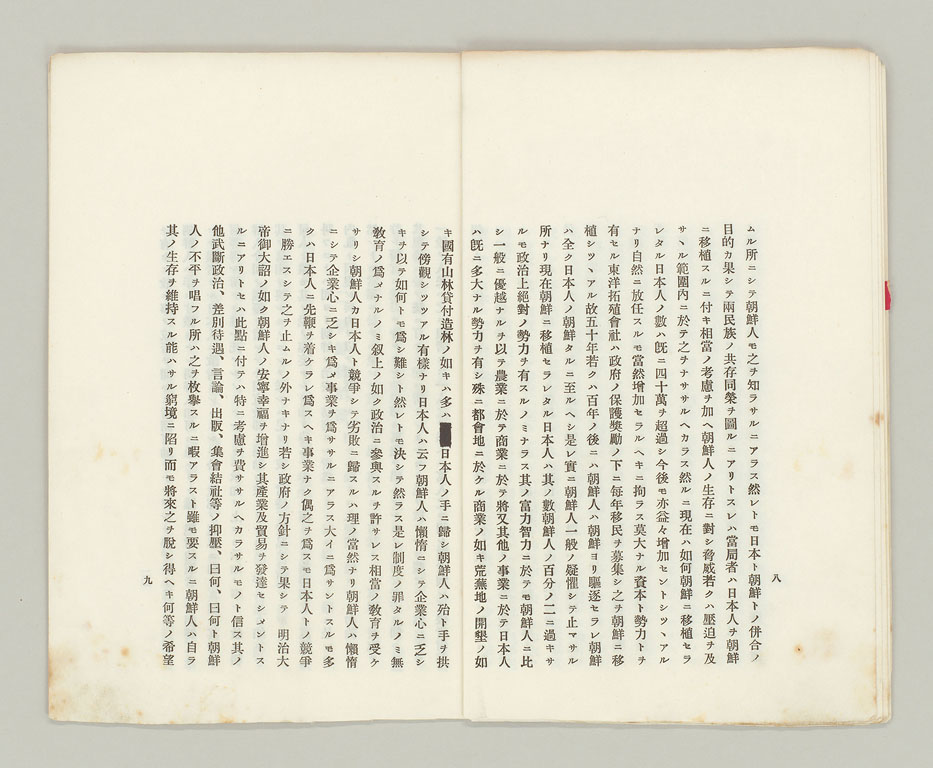 ムル所ニシテ朝鮮人モ之ヲ知ラサルニアラス然レトモ日本ト朝鮮トノ併合ノ
目的カ果シテ兩民族ノ共存同榮ヲ圖ルニアリトスレハ當局者ハ日本人ヲ朝鮮
ニ移植スルニ付キ相當ノ考慮ヲ加ヘ朝鮮人ノ生存ニ對シ脅威若クハ壓迫ヲ及
サヽル範圍內ニ於テ之ヲナササルヘカラス然ルニ現在ハ如何朝鮮ニ移植セラ
レタル日本人ノ數ハ旣ニ四十萬ヲ超過シ今後モ亦益々增加セントシツヽアル
ナリ自然ニ放任スルモ當然增加セラルヘキニ拘ラス莫大ナル資本ト勢力トヲ
有セル東洋拓殖會社ハ政府ノ保護奬勵ノ下ニ每年移民ヲ募集シ之ヲ朝鮮ニ移
植シツヽアル故五十年若クハ百年ノ後ニハ朝鮮人ハ朝鮮ヨリ驅逐セラレ朝鮮
ハ全ク日本人ノ朝鮮タルニ至ルヘシ是レ實ニ朝鮮人一般ノ疑懼シテ止マサル
所ナリ現在朝鮮ニ移植セラレタル日本人ハ其ノ數朝鮮人ノ百分ノ二ニ過キサ
ルモ政治上絕對ノ勢力ヲ有スルノミナラス其ノ富力智力ニ於テモ朝鮮人ニ比
シ一般ニ優越ナルヲ以テ農業ニ於テ商業ニ於テ將又其他ノ事業ニ於テ日本人
ハ旣ニ多大ナル勢力ヲ有シ殊ニ都會地ニ於ケル商業ノ如キ荒蕪地ノ開墾ノ如
八
キ國有山林貸付造林ノ如キハ多ハ日本人ノ手ニ歸シ朝鮮人ハ殆ト手ヲ拱
シテ傍觀シツツアル有樣ナリ日本人ハ云フ朝鮮人ハ懶惰ニシテ企業心ニ乏シ
キヲ以テ如何トモ爲シ難シト然レトモ決シテ然ラス是レ制度ノ罪タルノミ無
敎育ノ爲メナルノミ叙上ノ如ク政治ニ參與スルヲ許サレス相當ノ敎育ヲ受ケ
サリシ朝鮮人カ日本人ト競爭シテ劣敗ニ歸スルハ理ノ當然ナリ朝鮮人ハ懶惰
ニシテ企業心ニ乏シキ爲メ事業ヲ爲ササルニアラス大イニ爲サントスルモ多
クハ日本人ニ先鞭ヲ着ケラレ爲スヘキ事業ナク偶之ヲ爲スモ日本人トノ競爭
ニ勝エスシテ之ヲ止ムルノ外ナキナリ若シ政府ノ方針ニシテ果シテ 明治大
帝御大詔ノ如ク朝鮮人ノ安寧幸福ヲ增進シ其產業及貿易ヲ發達セシメントス
ルニアリトセハ此點ニ付テハ特ニ考慮ヲ費ササルヘカラサルモノト信ス其ノ
他武斷政治、差別待遇、言論、出版、集會結社等ノ抑壓、曰何、曰何ト朝鮮
人ノ不平ヲ唱フル所ハ之ヲ枚擧スルニ暇アラスト雖モ要スルニ朝鮮人ハ自ラ
其ノ生存ヲ維持スル能ハサル窮境ニ陷リ而モ將來之ヲ脫シ得ヘキ何等ノ希望
九